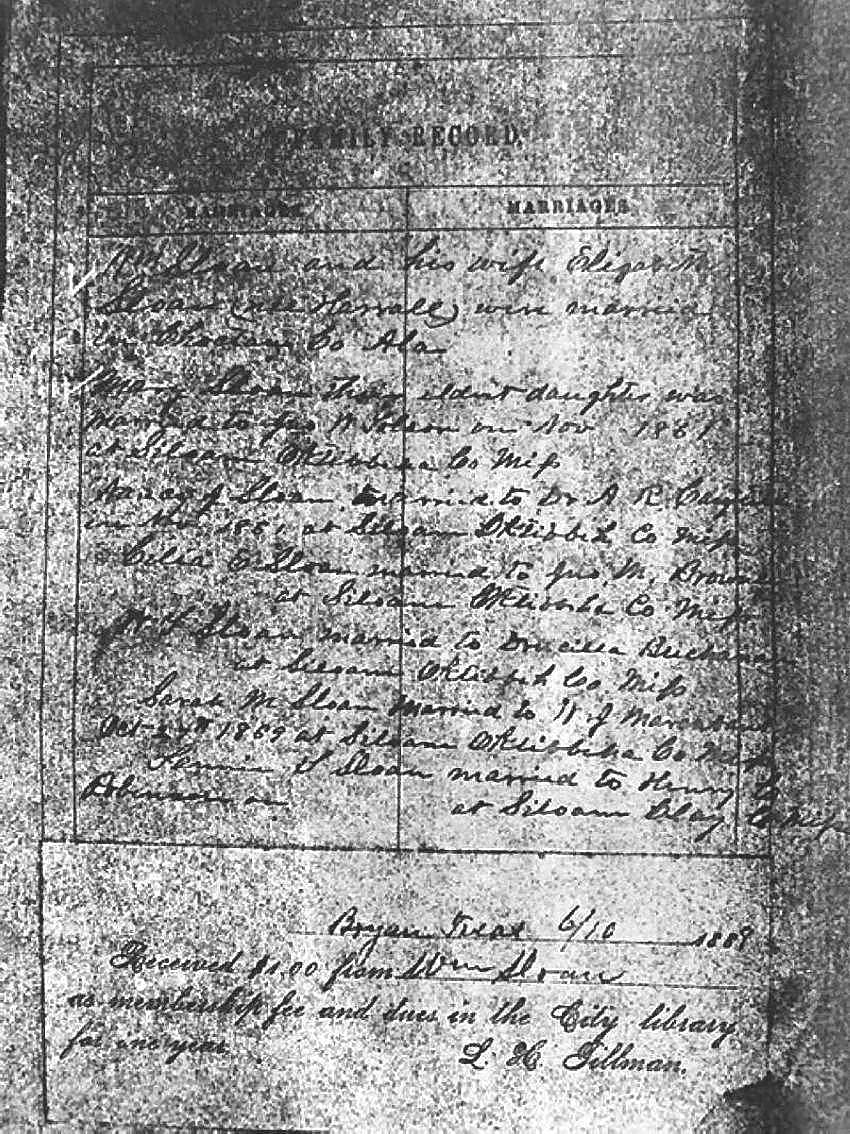 FAMILY RECORD.
MARRIAGES. MARRIAGES.
Sloan and his wife Elizabeth
Sloan (nee Harrall) were married
in Choctaw Co Ala
Mary Sloan their eldest daughter was
married to Geo W on Nov 1861
at Siloam Oktibbeha Co Miss
Nancy J Sloan married to Dr A R
in Nov 1861 at Siloam Oktibbeh Co Miss
Celia E Sloan married to Jno. M. Brown
at Siloam Oktibbeha Co Miss
W T Sloan married to Drucilla Buchanan
at Siloam Oktibbeh Co Miss
Sarah M Sloan Married to W J
Oct 1869 at Siloam Oktibbeha Co Miss
Fannie S Sloan married to Henry
Robinson on at Siloam Clay Co Miss
Bryan Texas 6/10 1889
Received $1.00 from Wm Sloan
as membership fee and dues in the City library
for one year
L. H. Tillman.